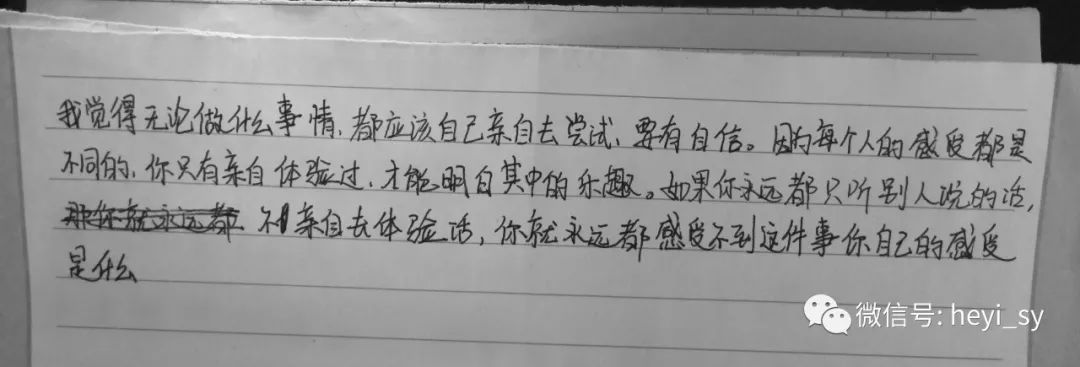 我觉得无论做什么事情、都应该自己亲自去尝试、要有自信。因为每个人的感受都是
不同的、你只有亲自体验过、才能明白其中的乐趣。如果你永远都只听别人说的话,
那你就永远都 不亲自去体验话,你就永远都感受不到这件事你自己的感受
是什么
微信号: heyi_sy